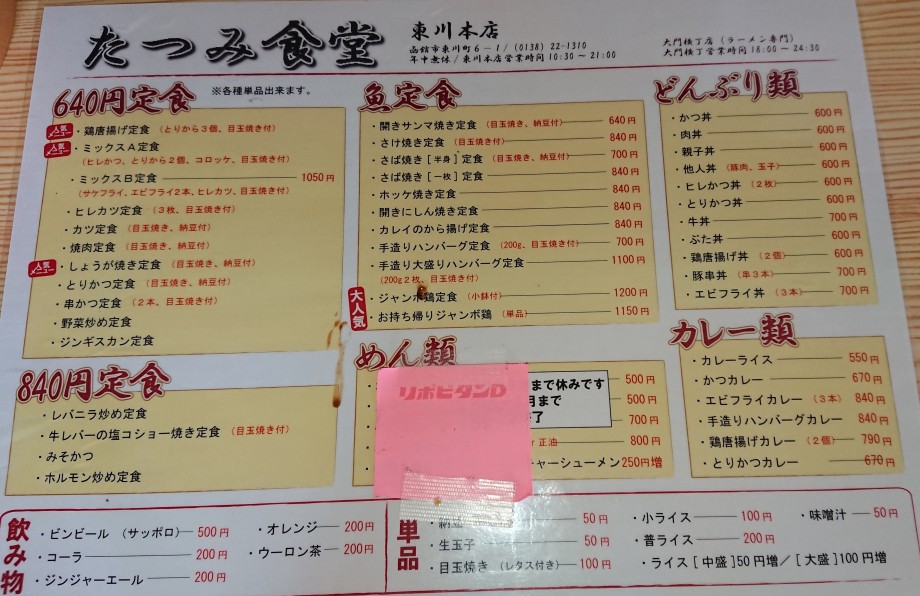 たつみ食堂
東川本店
函館市東川町6－1/(0138) 22-1310
年中無休/東川本店営業時間10:30～21:00
大門横丁店（ラーメン専門）
大門横丁営業時間18:00～24:30
640円定食 ※各種単品出来ます。
人気メニュー ・鶏唐揚げ定食（とりから3個、目玉焼き付）
人気メニュー ・ミックスA定食
（ヒレかつ、とりから2個、コロッケ、目玉焼き付）
・ミックスB定食 1050円
（サケフライ、エビフライ2本、ヒレカツ、目玉焼き付）
・ヒレカツ定食（3枚、目玉焼き付）
・カツ定食（目玉焼き、納豆付）
・焼肉定食（目玉焼き、納豆付）
人気メニュー ・しょうが焼き定食（目玉焼き、納豆付）
・とりかつ定食（目玉焼き、納豆付）
・串かつ定食（2本、目玉焼き付）
・野菜炒め定食
・ジンギスカン定食
840円定食
・レバニラ炒め定食
・牛レバーの塩コショー焼き定食（目玉焼き付）
・みそかつ
・ホルモン炒め定食
魚定食
・開きサンマ焼き定食（目玉焼き、納豆付） 640円
・さけ焼き定食（目玉焼き、納豆付） 840円
・さば焼き［半身］定食（目玉焼き、納豆付） 700円
・さば焼き［一枚］定食 840円
・ホッケ焼き定食 840円
・開きにしん焼き定食 840円
・カレイのから揚げ定食 840円
・手造りハンバーグ定食（200g、目玉焼き付） 700円
・手造り大盛りハンバーグ定食 1100円
（200g2枚、目玉焼き付）
大人気
・ジャンボ鶏定食（小鉢付） 1200円
・お持ち帰りジャンボ鶏（単品） 1150円
めん類
リポビタンD
まで休みです
月まで
了
500円
500円
700円
正油 800円
チャーシューメン250円増
どんぶり類
・かつ丼 600円
・肉丼 600円
・親子丼 600円
・他人丼（豚肉、玉子） 600円
・ヒレかつ丼（2枚） 600円
・とりかつ丼 600円
・牛丼 700円
・ぶた丼 600円
・鶏唐揚げ丼（2個） 600円
・豚串丼（串3本） 700円
・エビフライ丼（3本） 700円
カレー類
・カレーライス 550円
・かつカレー 670円
・エビフライカレー（3本） 840円
・手造りハンバーグカレー 840円
・鶏唐揚げカレー（2個） 790円
・とりかつカレー 670円
飲み物
・ビンビール（サッポロ） 500円
・コーラ 200円
・ジンジャーエール 200円
・オレンジ 200円
・ウーロン茶 200円
単品
50円
・生玉子 50円
・目玉焼き（レタス付き） 100円
・小ライス 100円
・普ライス 200円
・ライス［中盛］50円増／［大盛］100円増
・味噌汁 50円